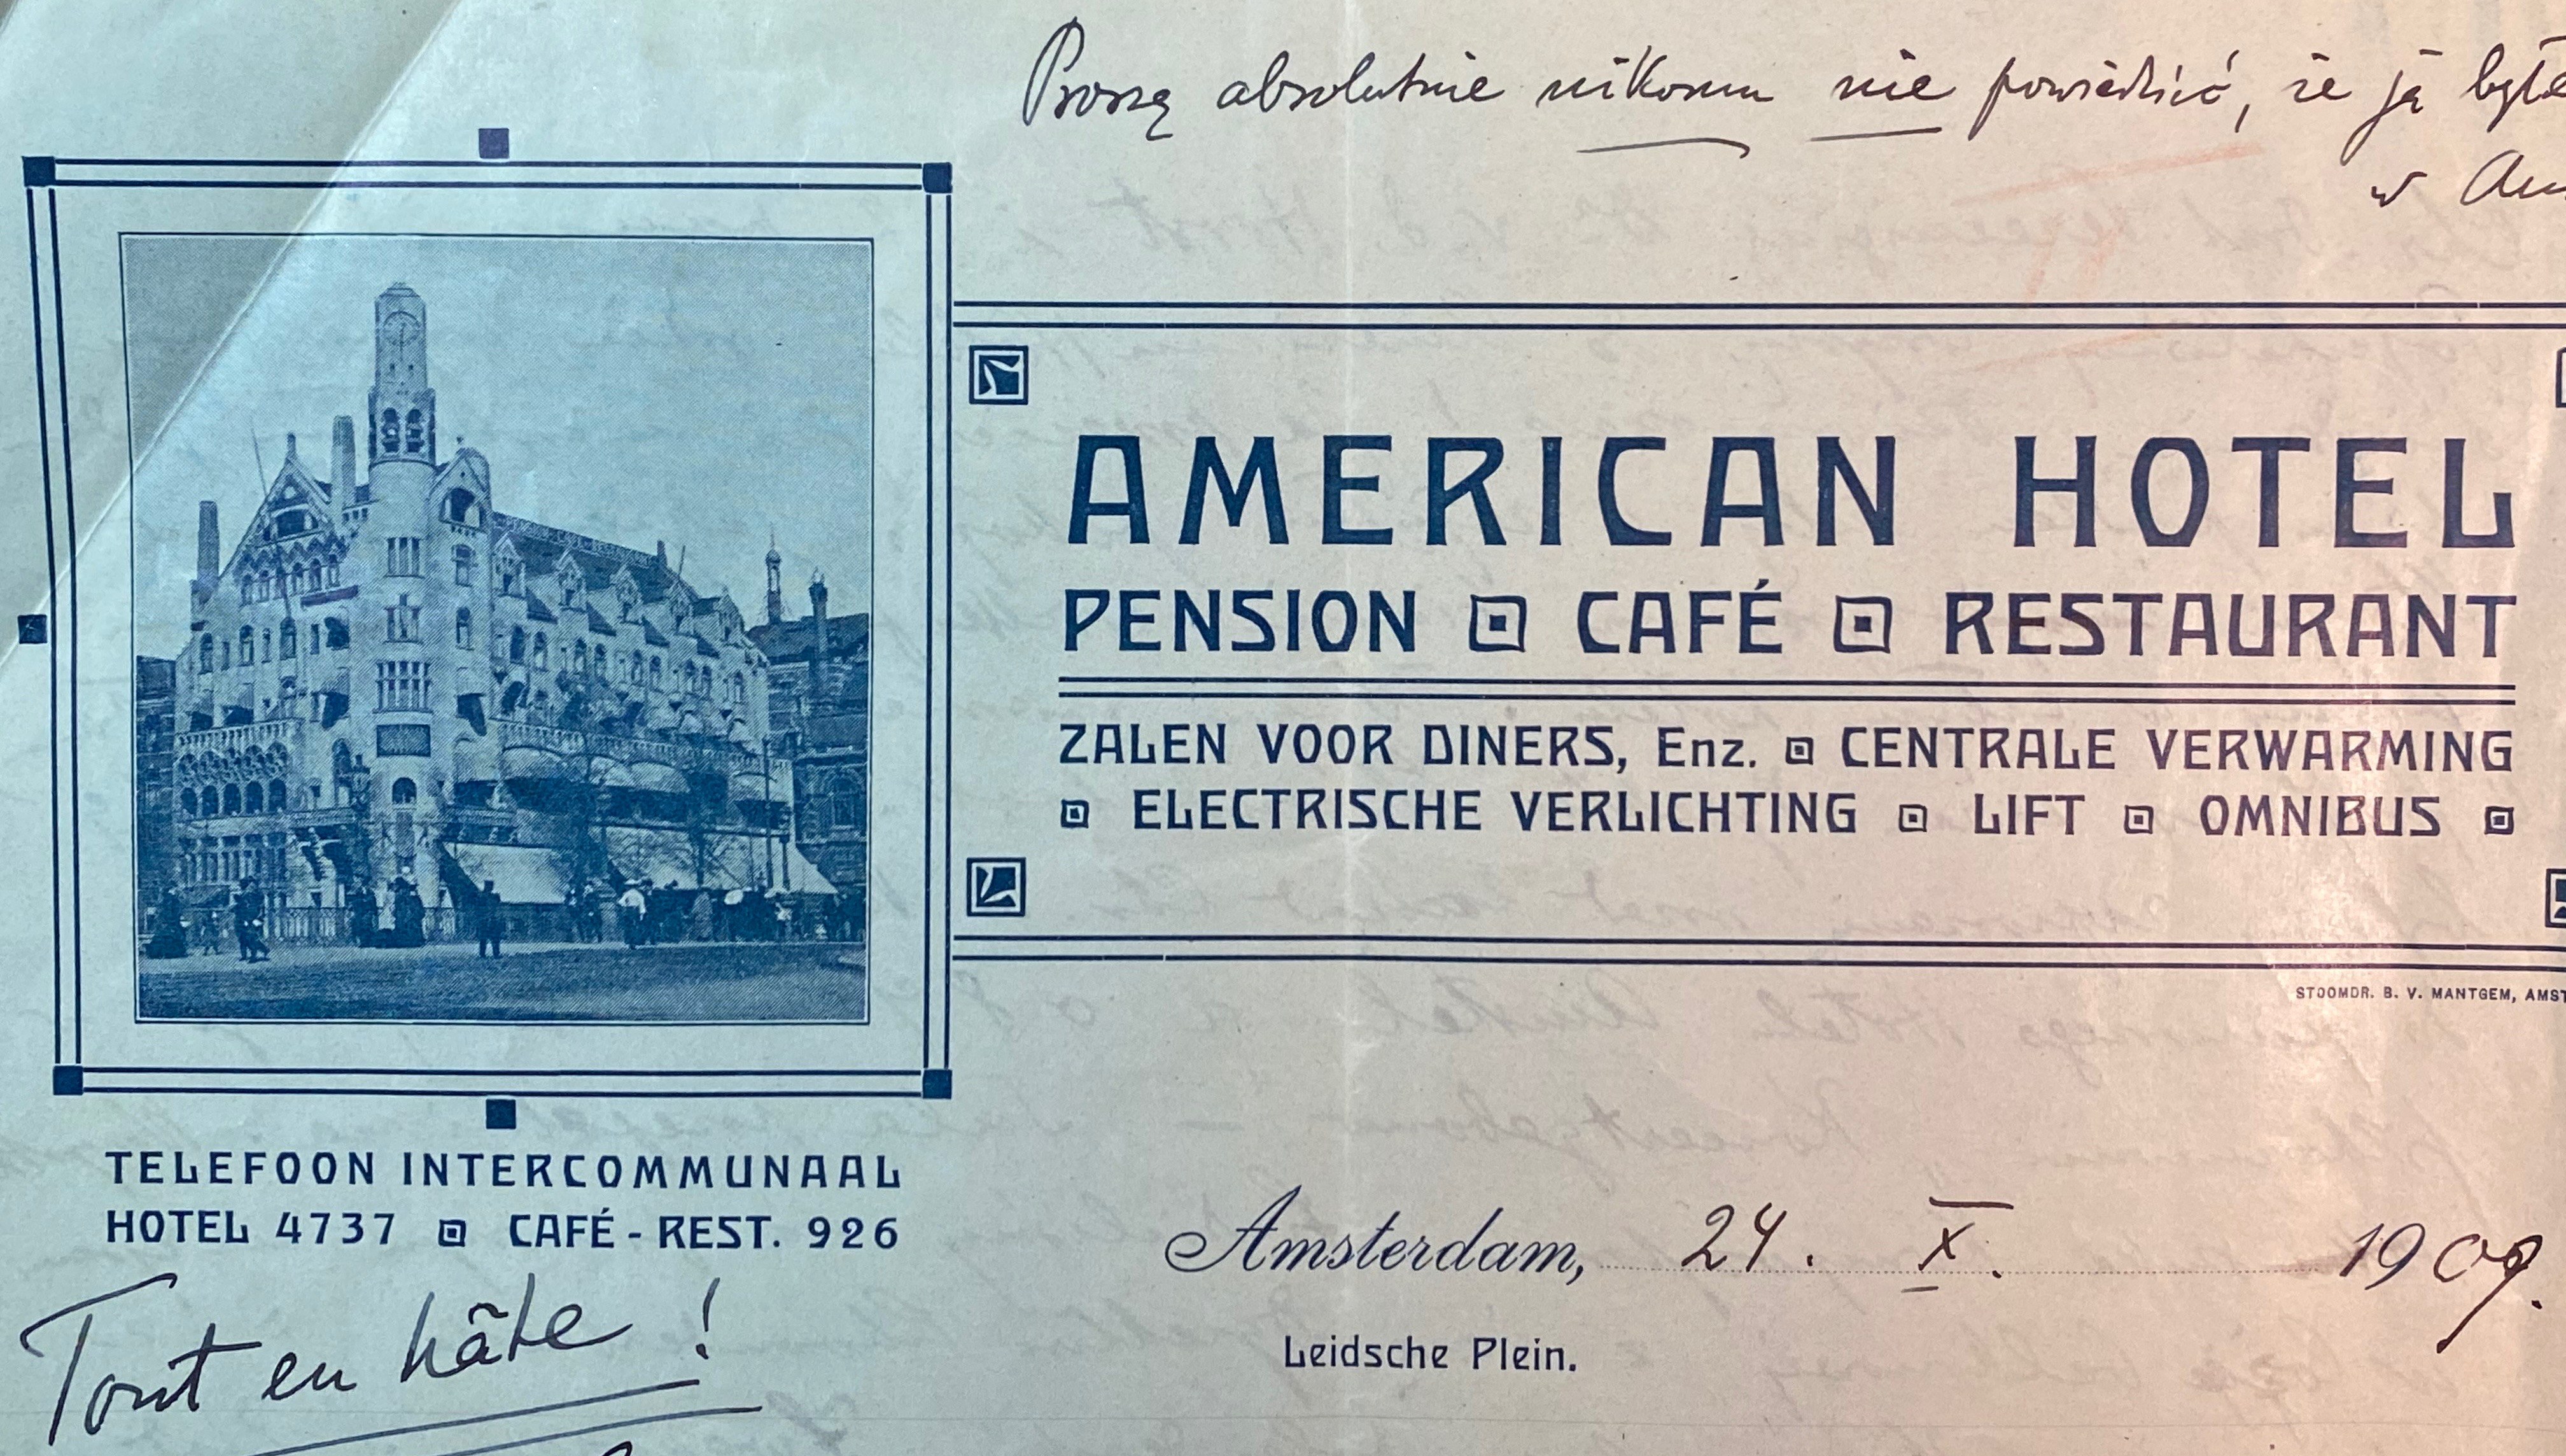 Proszę absolutnie nikomu nie powiedzieć, że ja
w
AMERICAN HOTEL
PENSION CAFÉ RESTAURANT
ZALEN VOOR DINERS, Enz. CENTRALE VERWARMING
ELECTRISCHE VERLICHTING LIFT OMNIBUS
STOOMDR. B. V. MANTGEM, AMST
TELEFOON INTERCOMMUNAAL
HOTEL 4737 CAFÉ-REST. 926
Amsterdam, 24. X. 1909.
Leidsche Plein.
Tout en hâte!